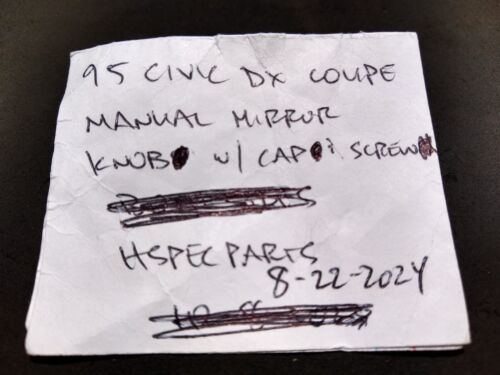 95 CIVIC DX COUPE
MANUAL MIRROR
KNOB w/ CAP & SCREW
HSPECPARTS
8-22-2024